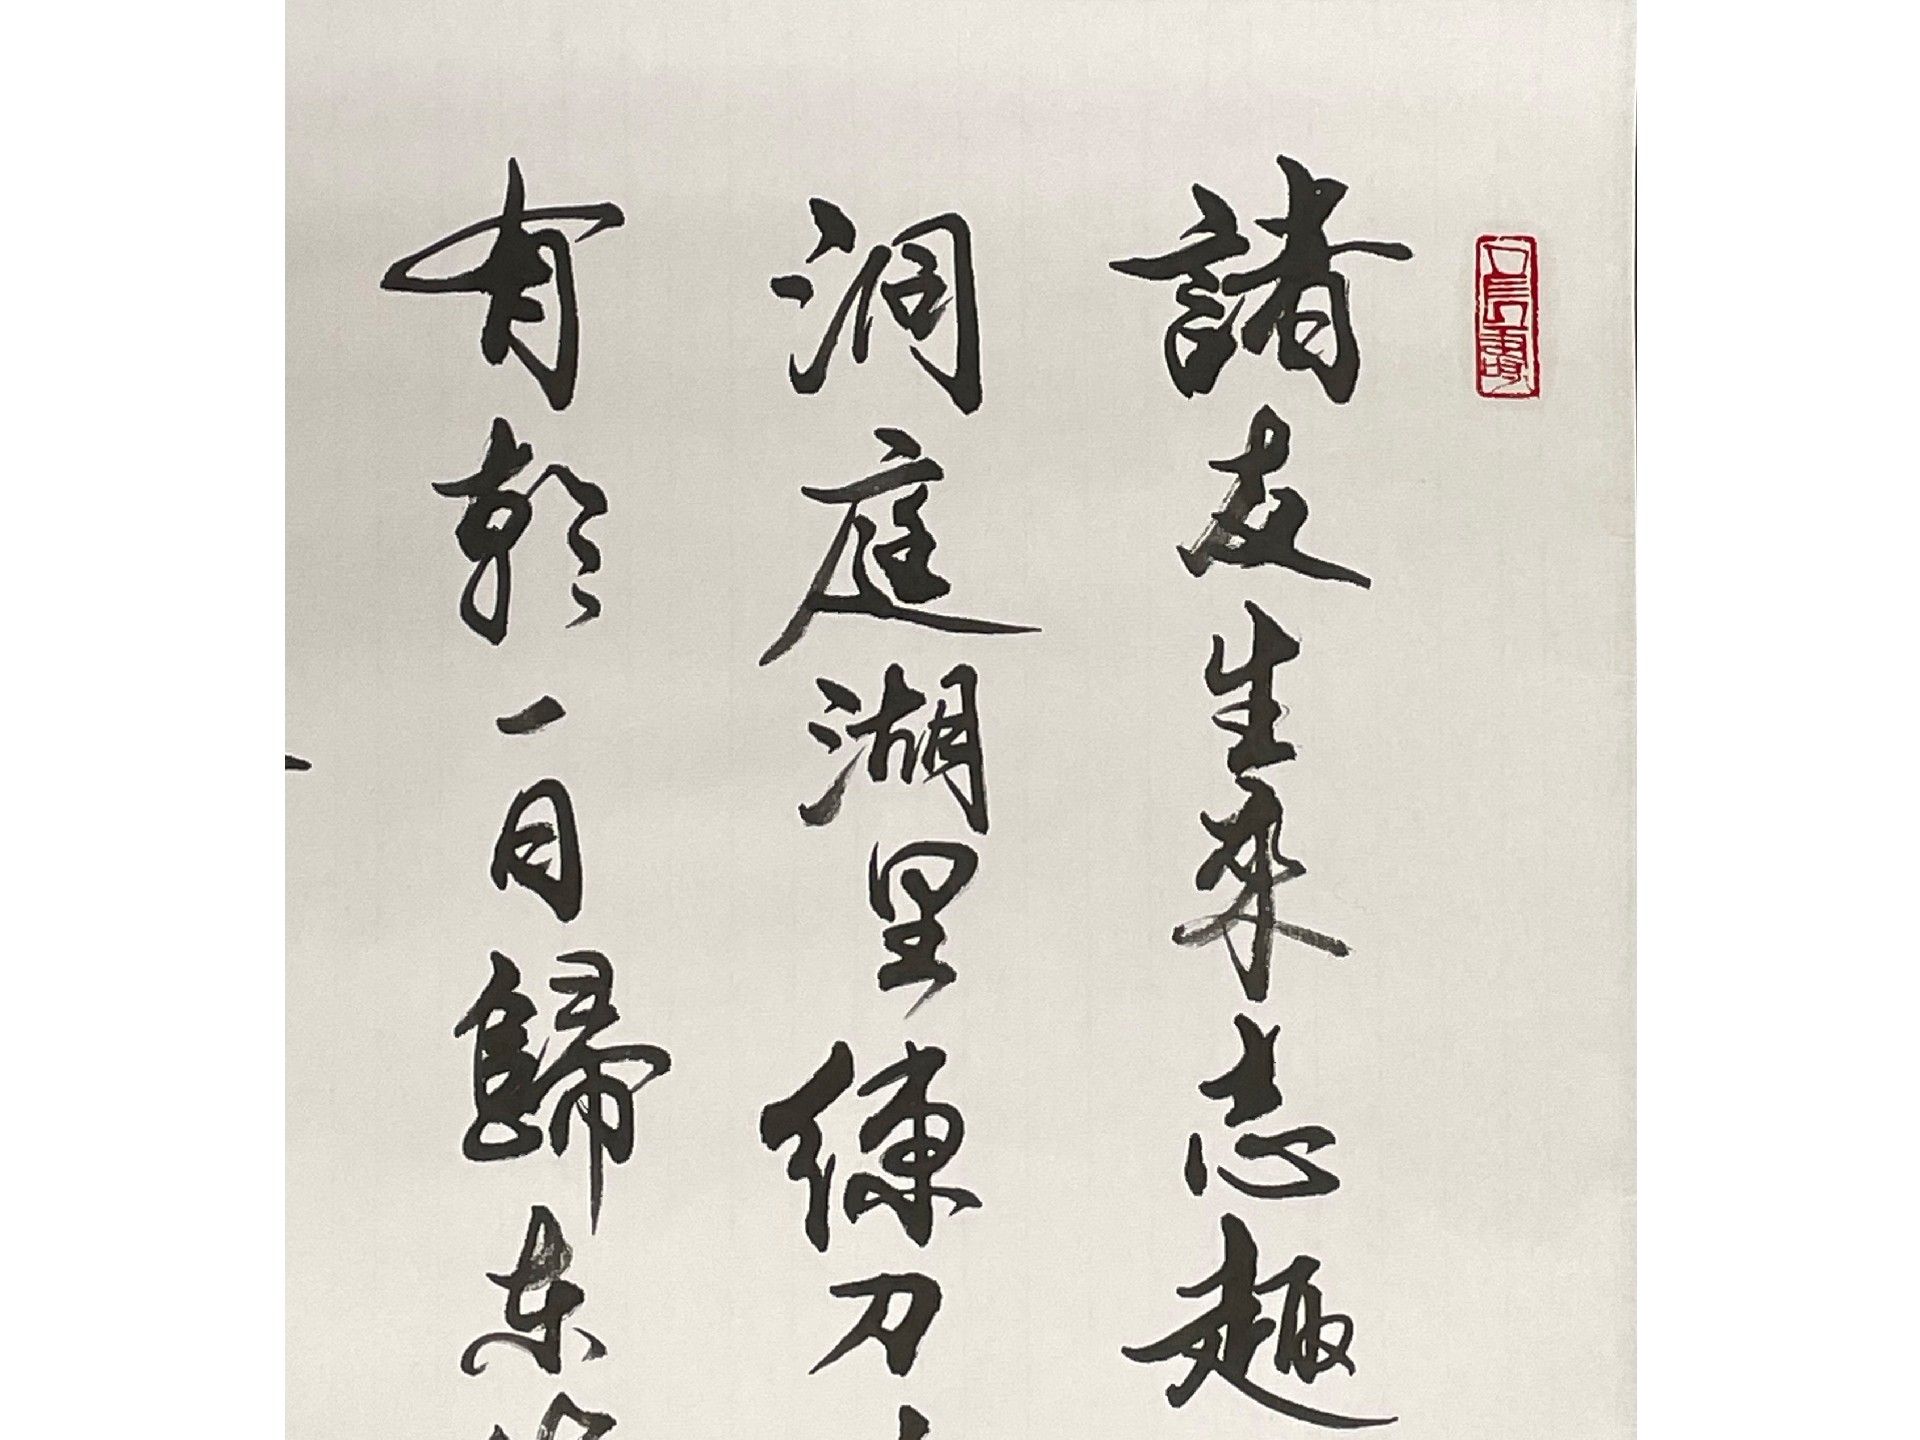 諸友生來志趣
洞庭湖里練刀
有朝一日歸東